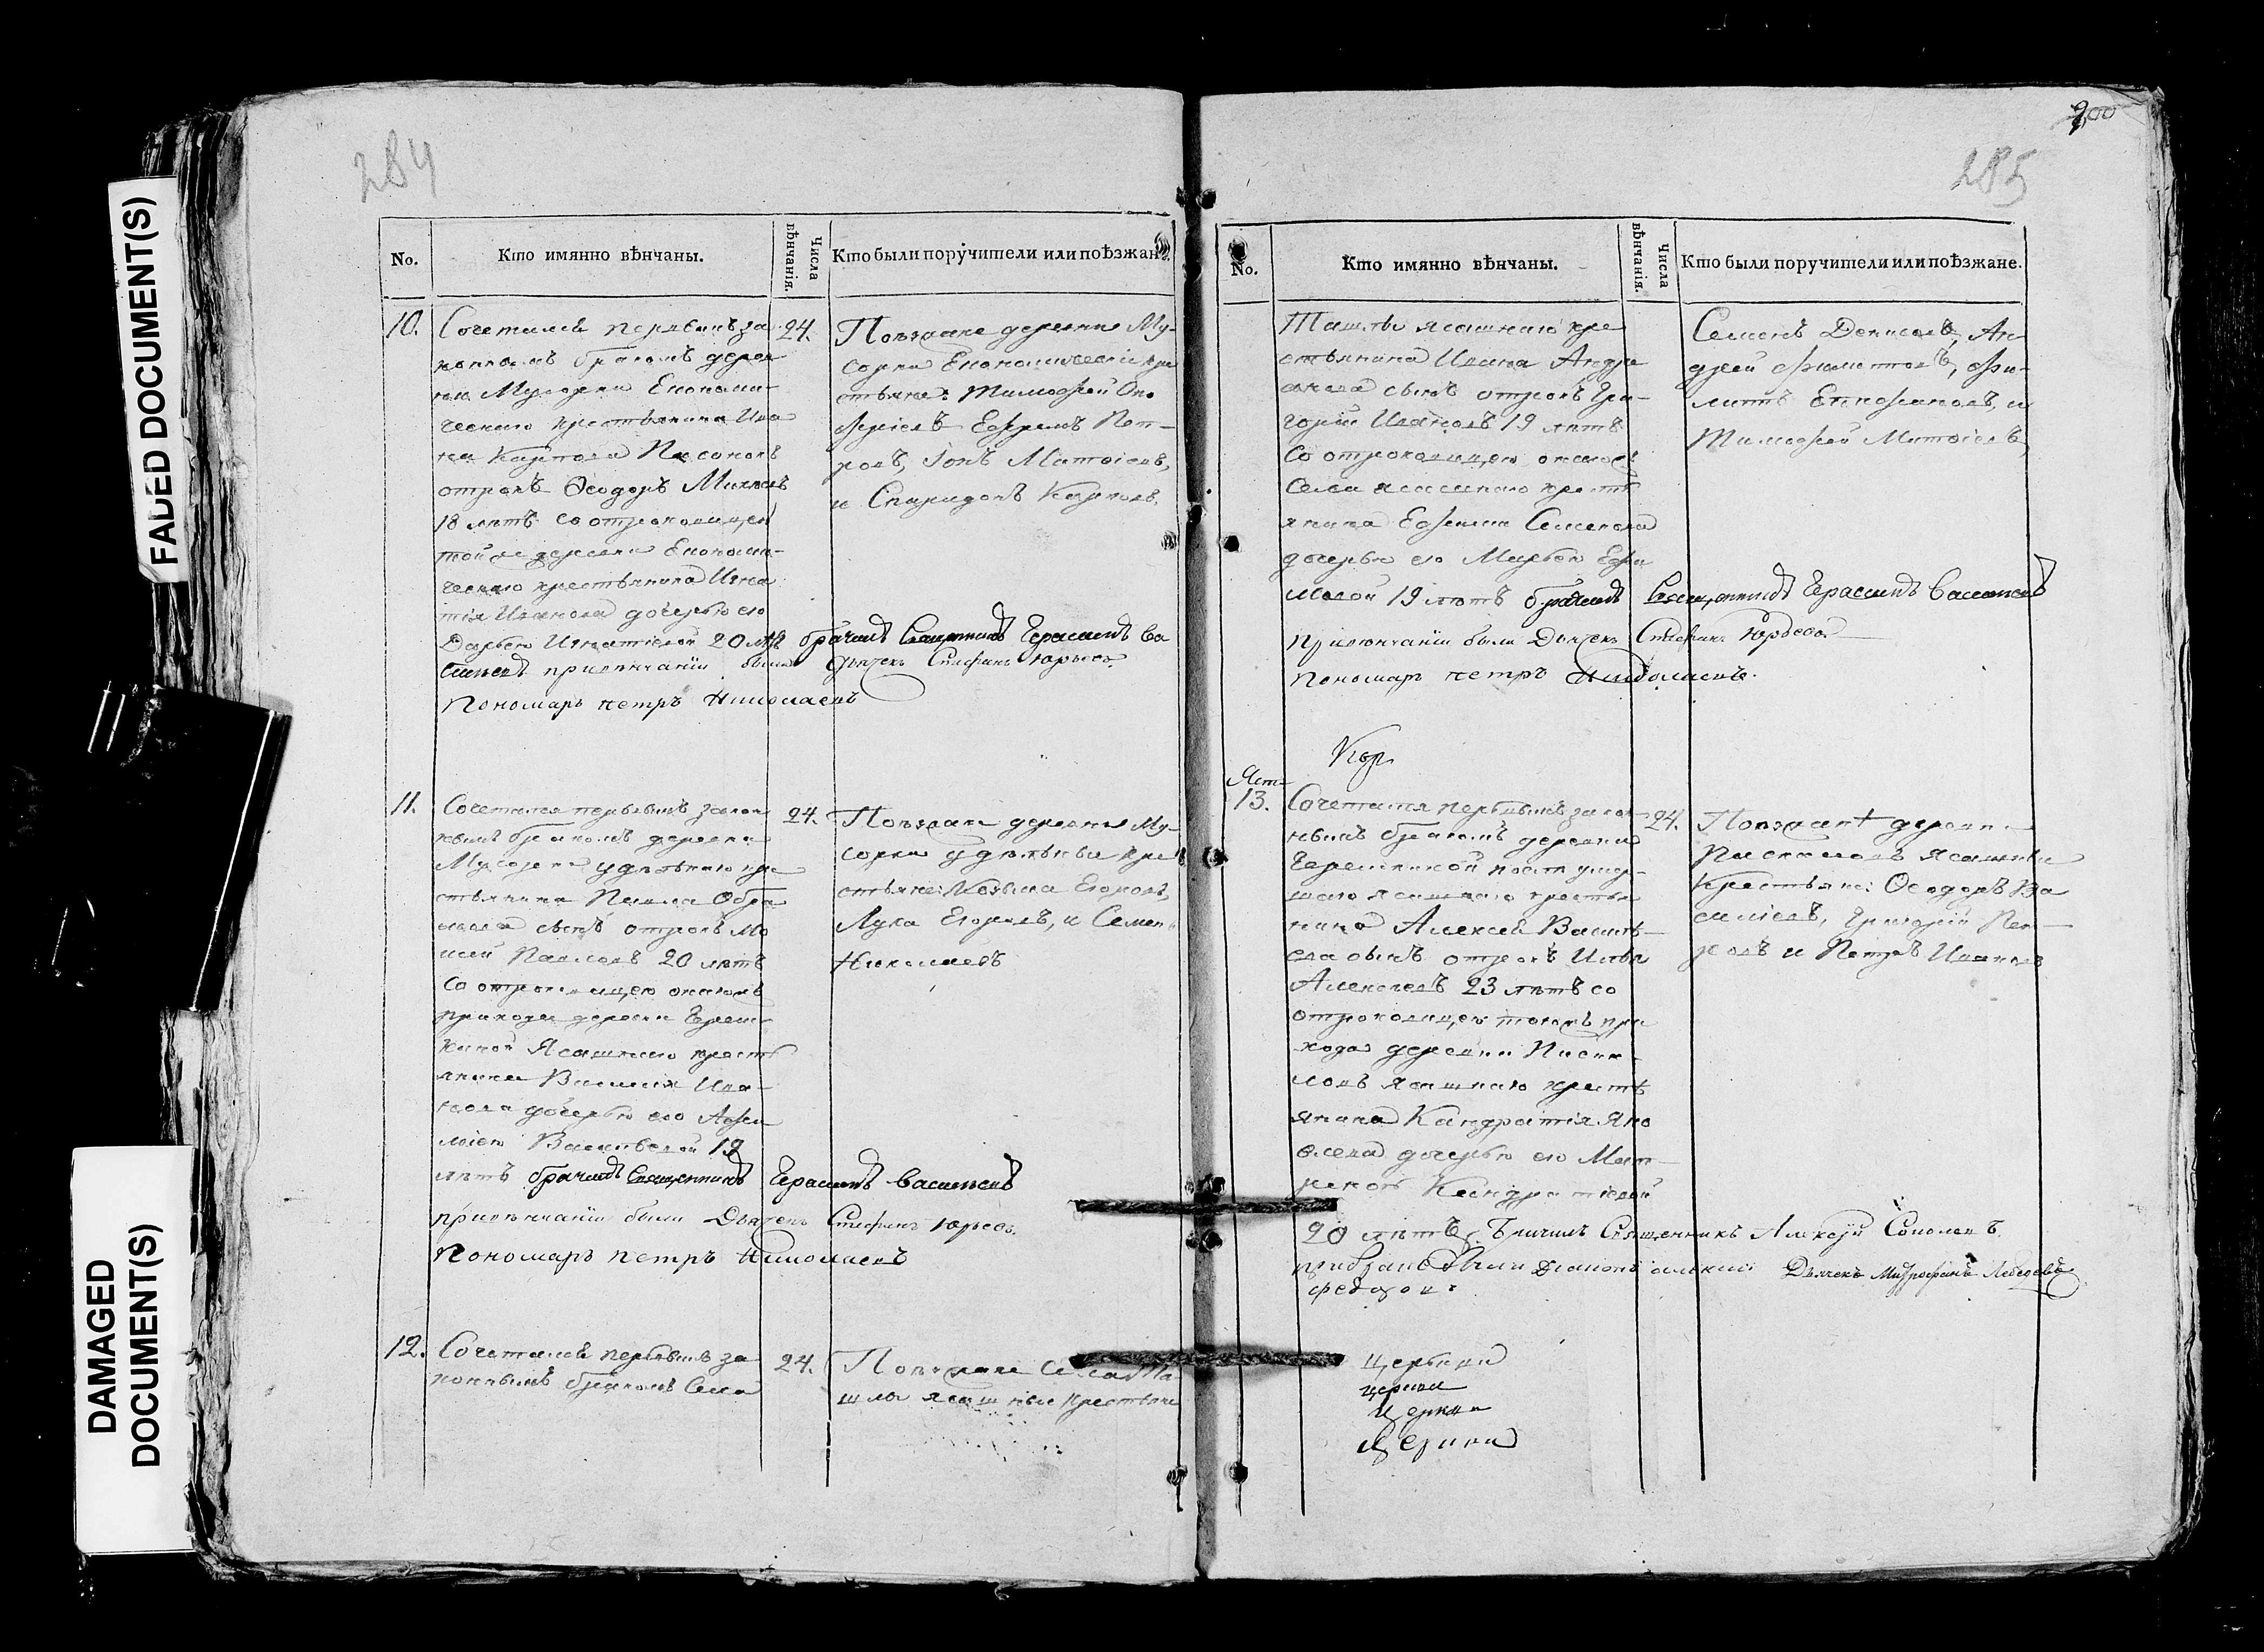 FADED DOCUMENT(S)
DAMAGED
DOCUMENT(S)
284
No.
Кто имянно вѣнчаны.
Числа
вѣнчанія.
Кто были поручители или поѣзжане.
10.
Сочетался первымъ за
коннымъ бракомъ дерев
ни Мусорки Економи-
ческаго крестьянина Ива
на Карпова
отрокъ Ѳеодоръ
18 лѣтъ со отроковицею
той же деревни Економи-
ческаго крестьянина Игна
тія Иванова дочерью его
Дарьею Игнатіевой 20 лѣтъ брачилъ Священникъ Герасимъ Ва
сильевъ привѣнчаніи были Дьячекъ Стефанъ Юрьевъ.
Пономарь петръ Николаевъ
24.
Поезжане деревни Му-
сорки Економическіе кре
стьяне: Тимофей
Ефремъ Пет-
ровъ, Матвіевъ,
и Спиридонъ Карповъ.
11.
Сочетался первымъ закон
нымъ бракомъ деревни
Мусорки удѣльнаго кре
стьянина Павла
сынъ отрокъ Мо
исей Павловъ 20 лѣтъ
Со отроковицею онагожъ
прихода деревни Ереш-
киной Ясашнаго кресть
янина Василія Ива-
нова дочерью его
Васильевой 19
лѣтъ брачилъ Священникъ Герасимъ Васильевъ
привѣнчаніи были Дьячекъ Стефанъ Юрьевъ.
Пономарь петръ Николаевъ
24.
Поезжане деревни Му-
сорки удѣльныи кре
стьяне: Козьма Егоровъ,
Лука Егоровъ, и Семенъ
Николаевъ
12.
Сочетался первымъ за
коннымъ бракомъ Села
24.
Поезжане Села Та-
шлы ясашные крестьяне
200
285
No.
Кто имянно вѣнчаны.
Числа
вѣнчанія.
Кто были поручители или поѣзжане.
Ташлы ясашнаго кре
стьянина Ивана Андре
сынъ отрокъ Гри-
горій Ивановъ 19 лѣтъ
Со отроковицею онагожъ
Села ясашнаго кресть
янина Ефима Семенова
дочерью его Марьею Ефи
мовой 19 лѣтъ брачилъ Священникъ Герасимъ Васильевъ
привѣнчаніи были Дьячекъ Стефанъ Юрьевъ.
пономарь петръ Николаевъ.
Семенъ Денисовъ, Ан-
дрей Филиповъ, Фи-
липъ Епифановъ, и
Тимофей Матвіевъ
13.
Сочетался первымъ закон-
нымъ бракомъ деревни
умер-
шаго ясашнаго крестья
нина Алексея Василь-
ева сынъ отрокъ Илья
Алексеевъ 23 лѣтъ со
отроковицею тогожъ при
хода деревни
ясашнаго кресть
янина Кандратія Яко
влева дочерью его Мат-
реной Кандратіевой
20 лѣтъ, Брачилъ Священникъ Алексѣй Соколовъ
были Дьячекъ Митрофанъ Лебедевъ
24.
Поезжане деревни
Ясашныи
Крестьяне: Ѳеодоръ Ва
силіевъ, Григорій Пет-
ровъ и Петръ Ивановъ
Церкви
церкви
церкви
Церкви